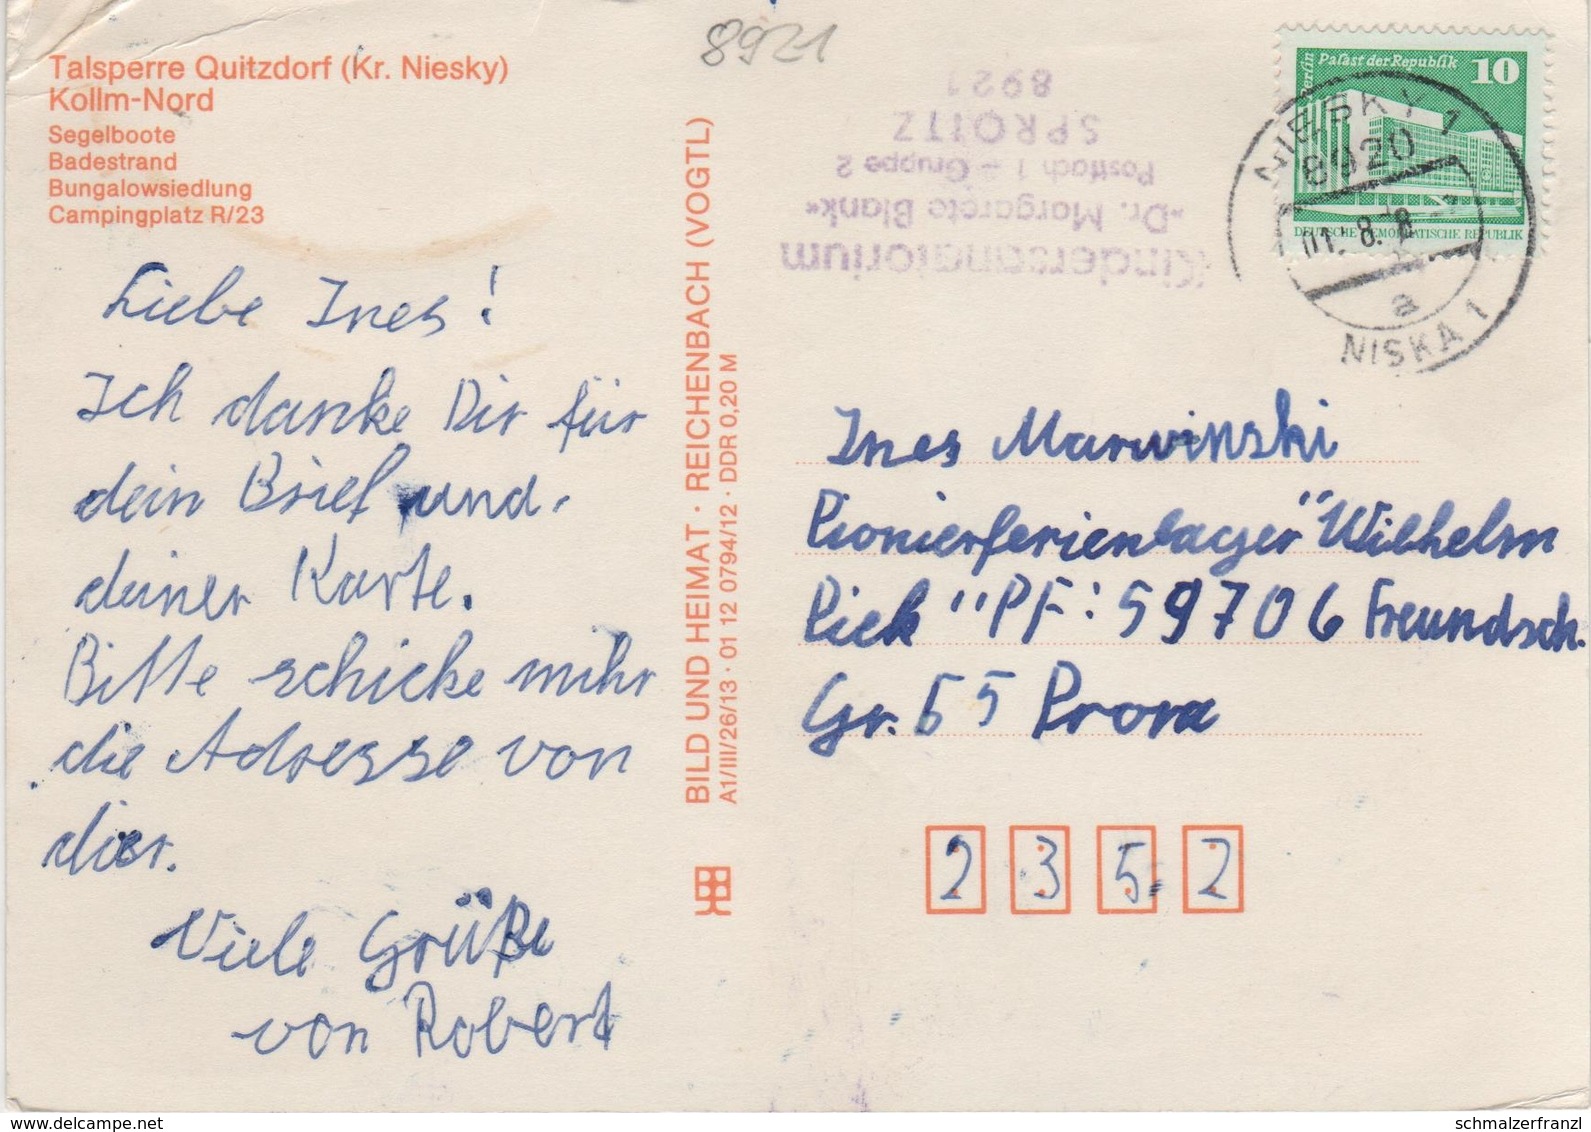 Talsperre Quitzdorf (Kr. Niesky)
Kollm-Nord
Segelboote
Badestrand
Bungalowsiedlung
Campingplatz R/23
Liebe Ines!
Ich danke Dir für
dein Brief und
deiner Karte.
Bitte schicke mihr
die Adresse von
dier.
Viele Grüße
von Robert
BILD UND HEIMAT · REICHENBACH (VOGTL)
A1/III/26/13 · 01 12 0794/12 · DDR 0,20 M
8921
Kindersanatorium
»Dr. Margarete Blank«
Postfach 1 - Gruppe 2
SPROITZ
8921
Berlin Palast der Republik 10
DEUTSCHE DEMOKRATISCHE REPUBLIK
NIESKY 1
8920
01. 8. 8
a
NISKA 1
Ines Marwinski
Pionierferienlager "Wilhelm
Pieck" PF: 59706 Freundsch.
Gr. 55 Prora
2 3 5 2
www.delcampe.net
schmalzerfranzl